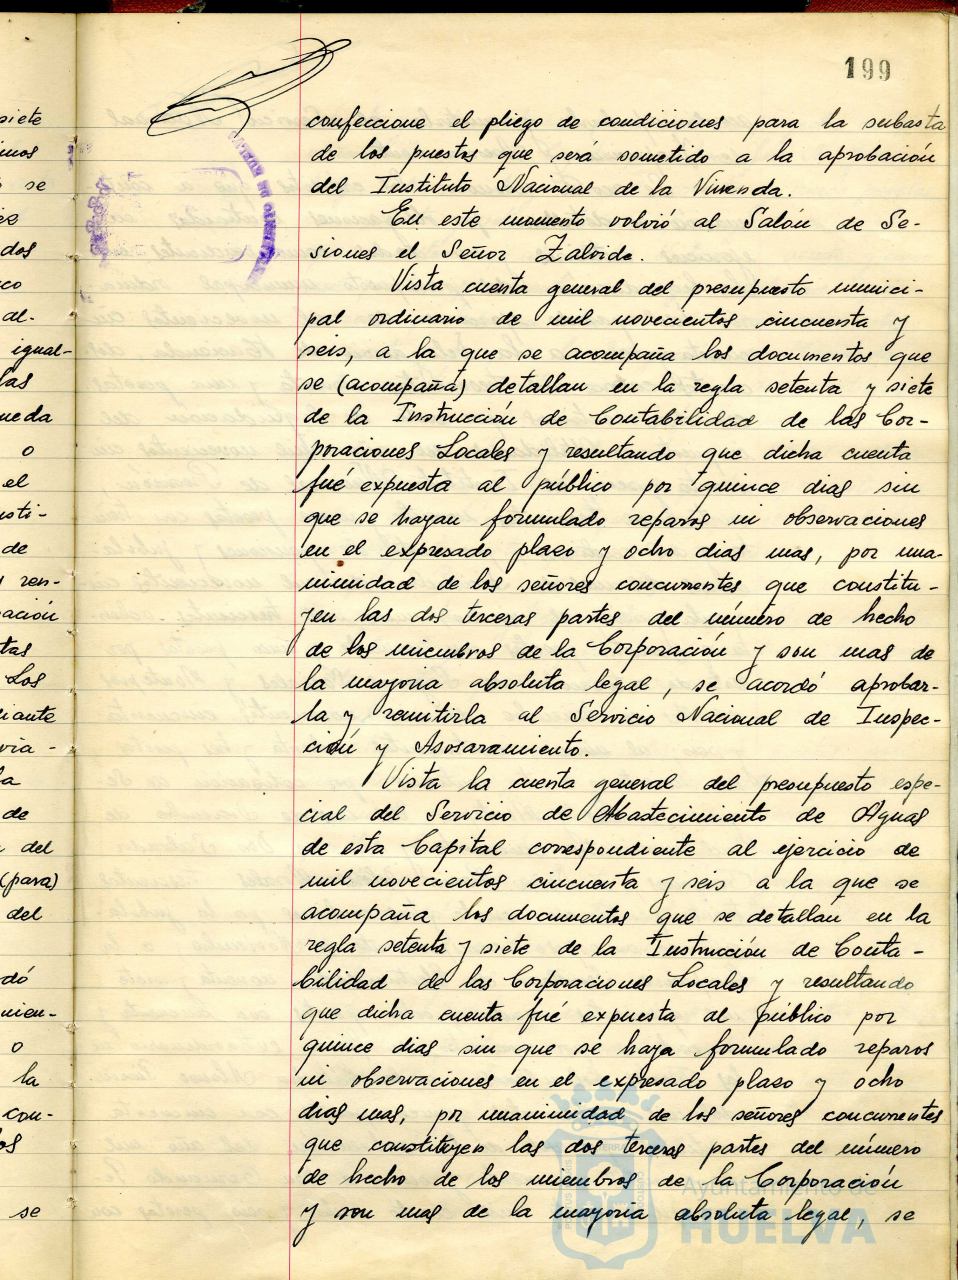 199
confeccione el pliego de condiciones para la subasta
de los puestos que será sometido a la aprobación
del Instituto Nacional de la Vivienda.
En este momento volvió al Salón de Se-
siones el Señor Zalvide.
Vista cuenta general del presupuesto munici-
pal ordinario de mil novecientos cincuenta y
seis, a la que se acompaña los documentos que
se (acompaña) detallan en la regla setenta y siete
de la Instrucción de Contabilidad de las Cor-
poraciones Locales y resultando que dicha cuenta
fué expuesta al público por quince dias sin
que se hayan formulado reparos ni observaciones
en el expresado plazo y ocho dias mas, por una-
nimidad de los señores concurrentes que constitu-
yen las dos terceras partes del número de hecho
de los miembros de la Corporación y son mas de
la mayoria absoluta legal, se acordó aprobar-
la y remitirla al Servicio Nacional de Inspec-
ción y Asosaramiento.
Vista la cuenta general del presupuesto espe-
cial del Servicio de Abastecimiento de Aguas
de esta Capital correspondiente al ejercicio de
mil novecientos cincuenta y seis a la que se
acompaña los documentos que se detallan en la
regla setenta y siete de la Instrucción de Conta-
bilidad de las Corporaciones Locales y resultando
que dicha cuenta fué expuesta al público por
quince dias sin que se haya formulado reparos
ni observaciones en el expresado plazo y ocho
dias mas, por unanimidad de los señores concurrentes
que constituyen las dos terceras partes del número
de hecho de los miembros de la Corporación
y son mas de la mayoria absoluta legal, se
siete
se
dos
al-
igual-
las
queda
o
el
de
ren-
Los
de
del
(para)
del
o
la
con-
se
Ayuntamiento de
HUELVA